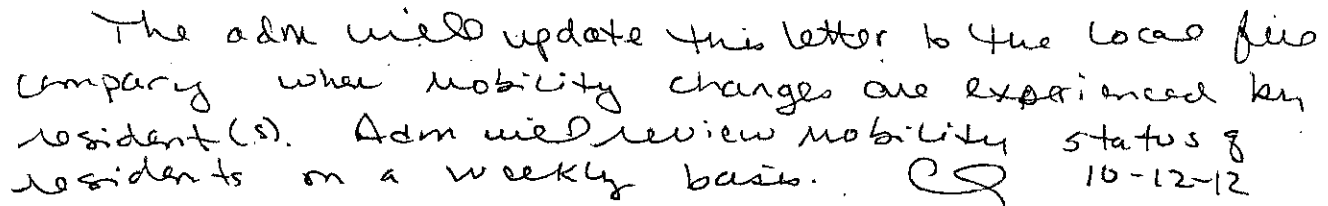 The adm will update this letter to the local fire
company when mobility changes are experienced by
resident(s). Adm will review mobility status of
residents on a weekly basis. 10-12-12